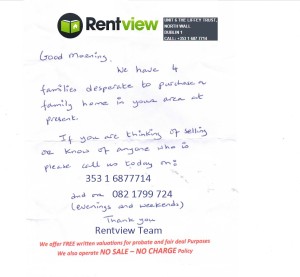 Rentview
UNIT 6 THE LIFFEY TRUST,
NORTH WALL
DUBLIN 1
CALL: +353 1 687 7714
Good morning,
We have 4
families desparate to purchase a
family home in your area at
present.
If you are thinking of selling
or know of anyone who is
please call us today on:
353 1 6877714
and or 082 1799 724
(evenings and weekends)
Thank you
Rentview Team
We offer FREE written valuations for probate and fair deal Purposes
We also operate NO SALE – NO CHARGE Policy